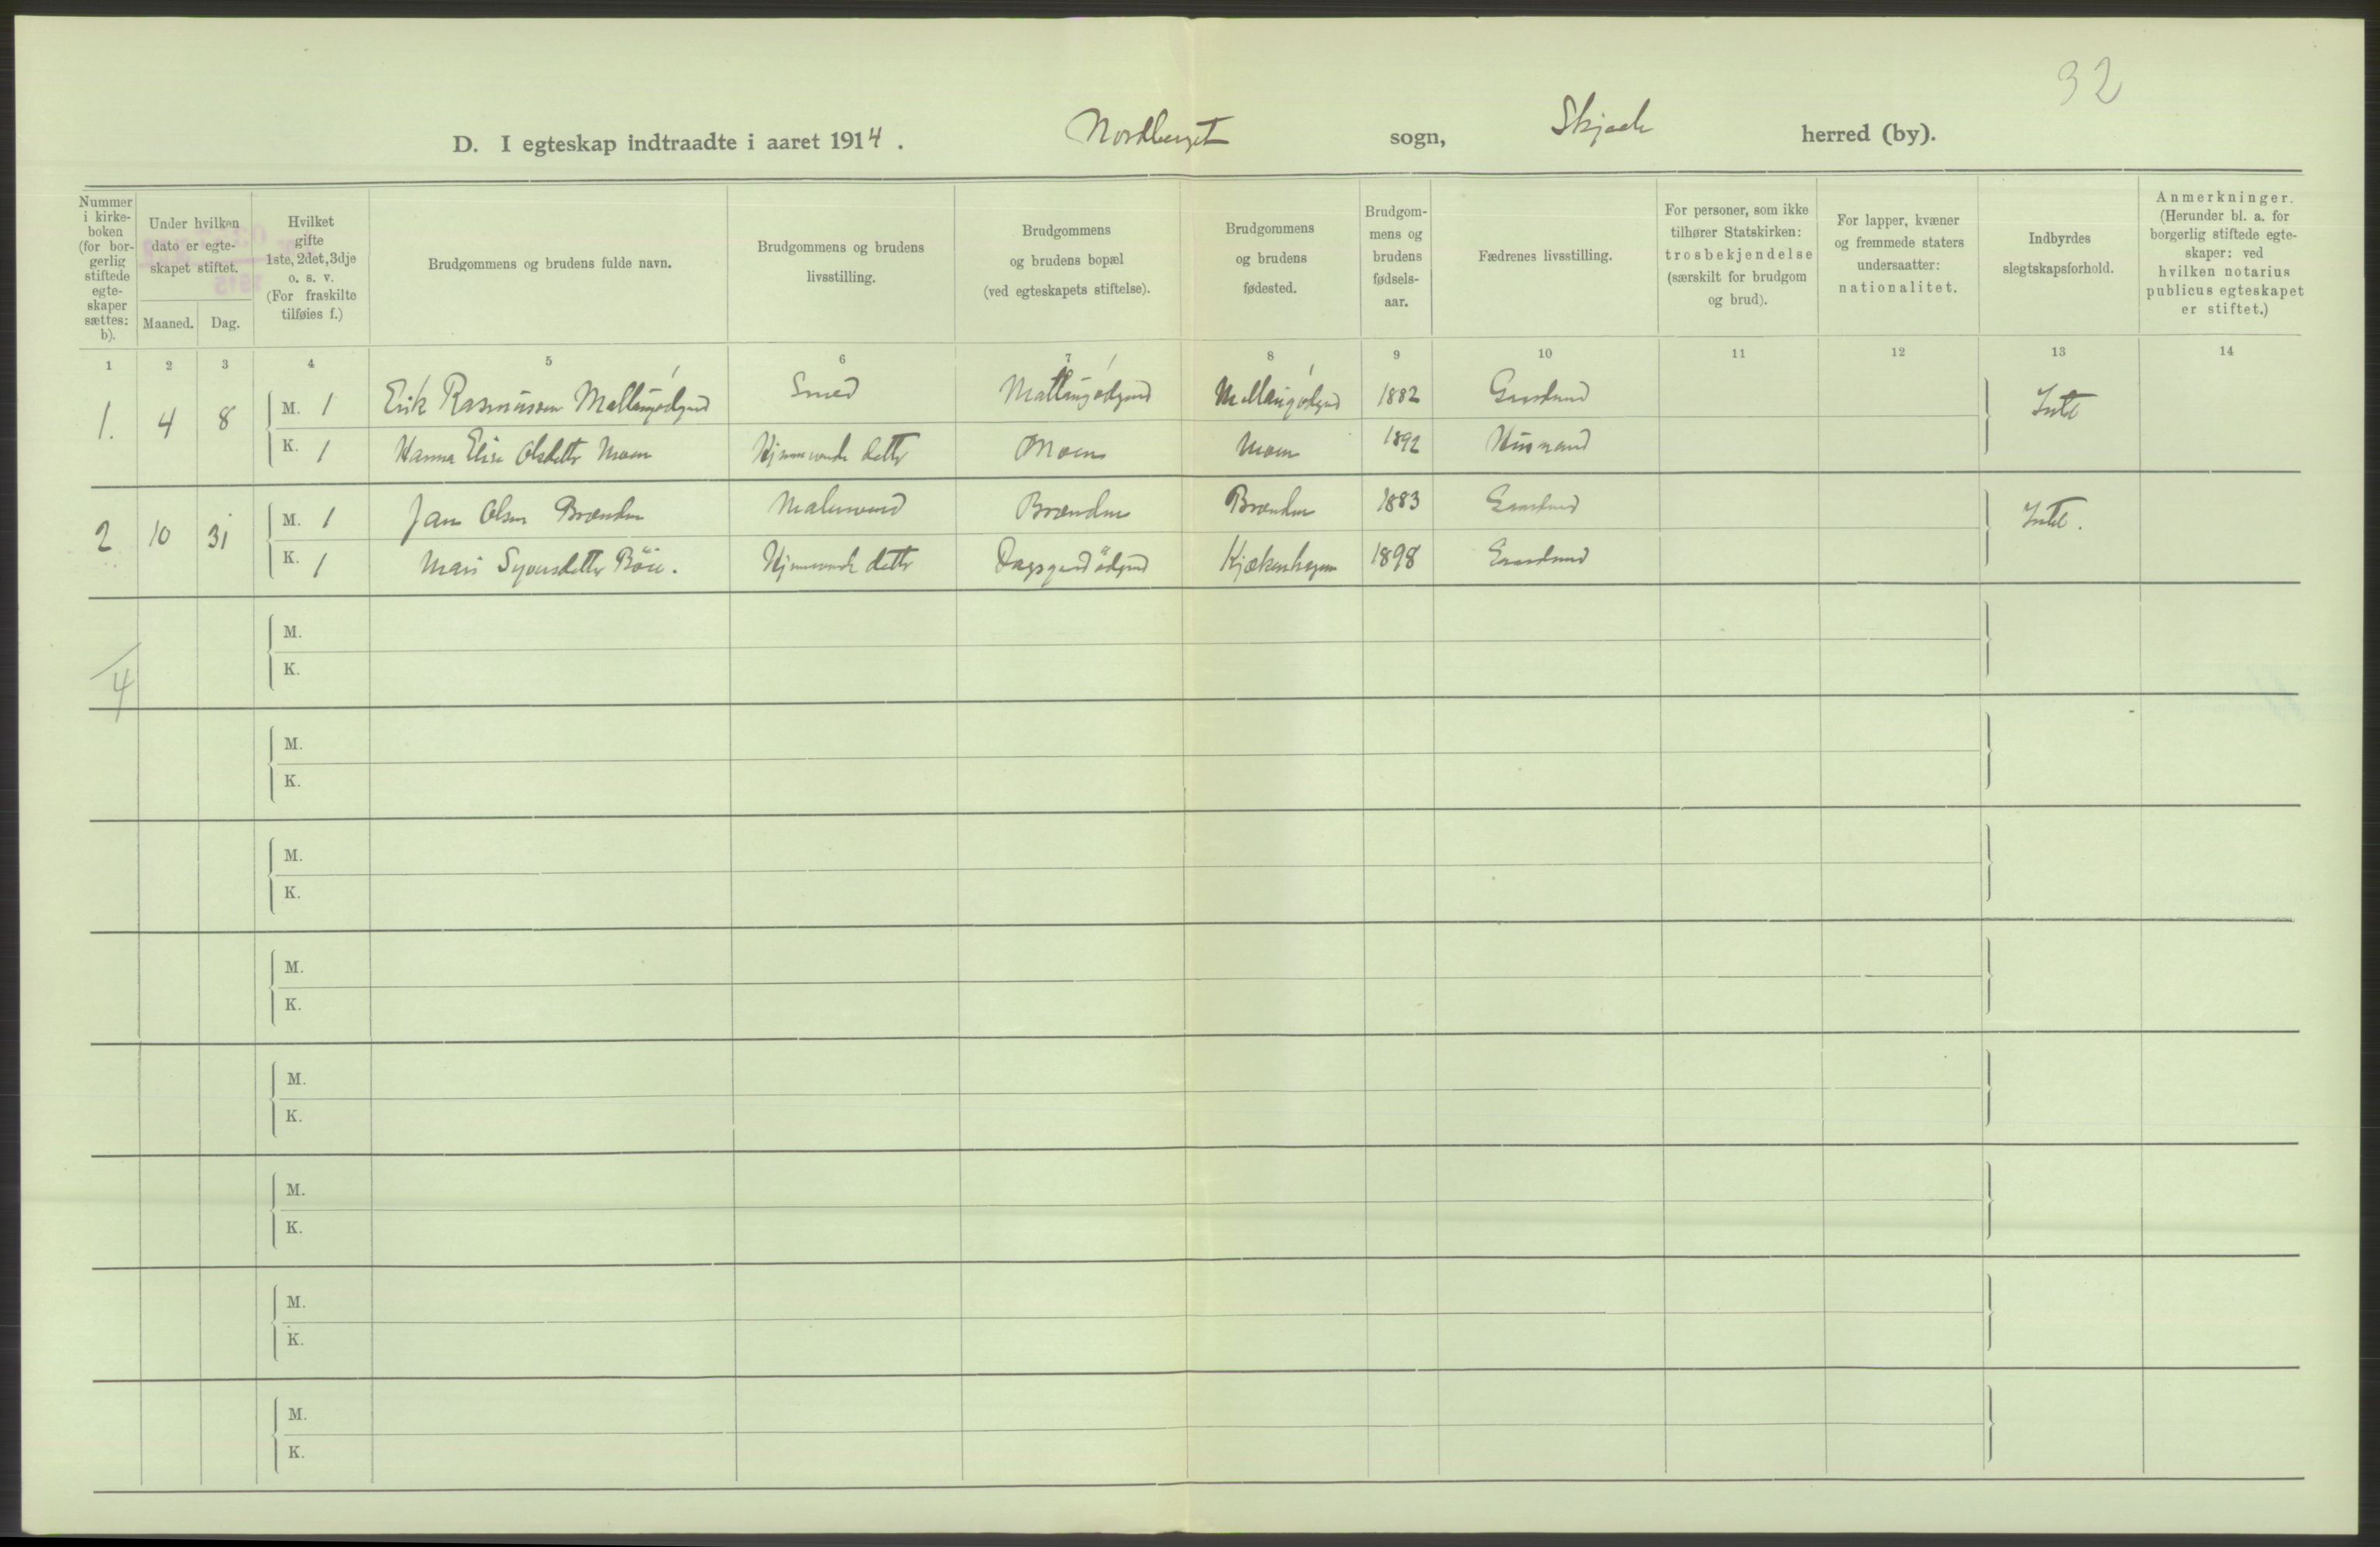 32
D. I egteskap indtraadte i aaret 1914. Nordberget sogn, Skjaak herred (by).
Nummer i kirkeboken (for borgerlig stiftede egteskaper sættes: b).
Under hvilken dato er egteskapet stiftet.
Maaned. Dag.
Hvilket gifte 1ste, 2det, 3dje o. s. v. (For fraskilte tilføies f.)
Brudgommens og brudens fulde navn.
Brudgommens og brudens livsstilling.
Brudgommens og brudens bopæl (ved egteskapets stiftelse).
Brudgommens og brudens fødested.
Brudgommens og brudens fødselsaar.
Fædrenes livsstilling.
For personer, som ikke tilhører Statskirken: trosbekjendelse (særskilt for brudgom og brud).
For lapper, kvæner og fremmede staters undersaatter: nationalitet.
Indbyrdes slegtskapsforhold.
Anmerkninger. (Herunder bl. a. for borgerlig stiftede egteskaper: ved hvilken notarius publicus egteskapet er stiftet.)
1 2 3 4 5 6 7 8 9 10 11 12 13 14
1. 4 8 M. 1 Erik Rasmussen Smed 1882 Intet
K. 1 Hanna Elise Olsdatter Moen Hjemmev. datter Moen Moen 1892 Husmand
2 10 31 M. 1 Jan Olsen Brænden Brænden Brænden 1883 Gaardmand Intet.
K. 1 Mari Syversdatter Böie. Hjemmev. datter 1898 Gaardmand
M.
K.
4
M.
K.
M.
K.
M.
K.
M.
K.
M.
K.
M.
K.
M.
K.